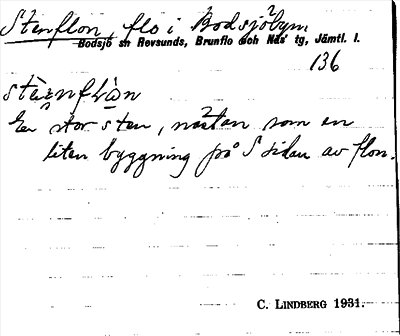 Stenflon, flo i Bodsjöbyn
Bodsjö sn Revsunds, Brunflo och Näs' tg, Jämtl. l.
136
En stor sten, nästan som en
liten byggning på S sidan av flon.
C. LINDBERG 1931.